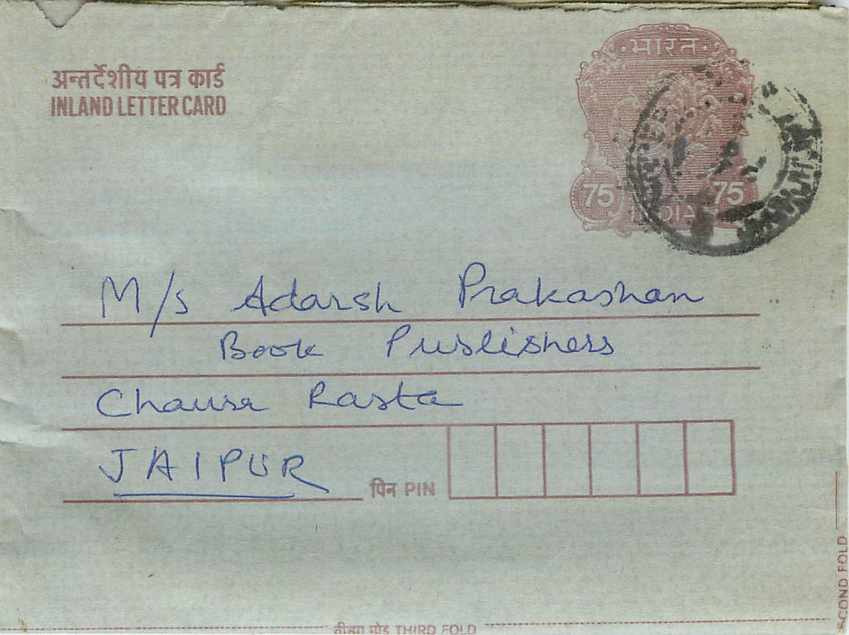 अन्तर्देशीय पत्र कार्ड
INLAND LETTER CARD
भारत
75 75
INDIA
M/s Adarsh Prakashan
Book Publishers
Chaura Rasta
JAIPUR
पिन PIN
SECOND FOLD
तीसरा मोड़ THIRD FOLD